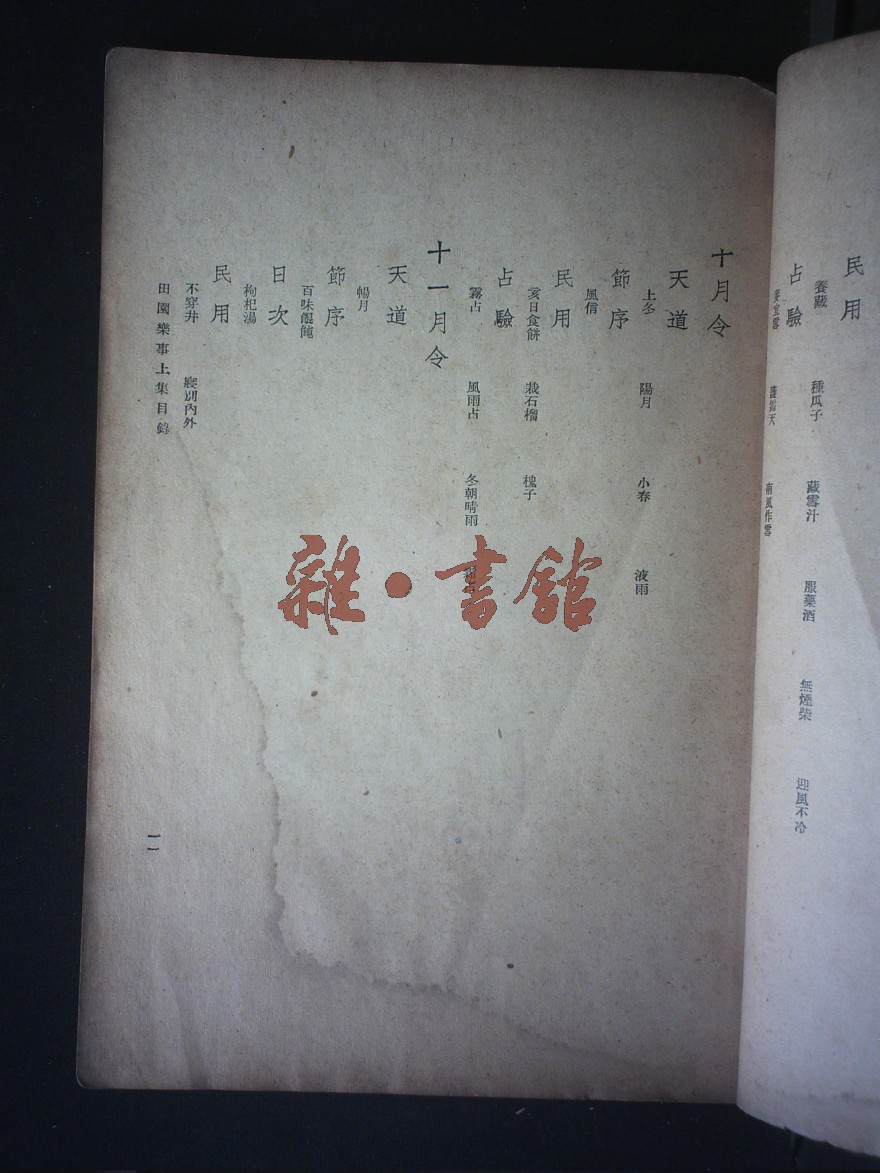 民用
養藏　種瓜子　藏雪汁　服藥酒　無煙柴　迎風不冷
占驗
麥宜雪　護霜天　南風作雪
十月令
天道
上冬　陽月　小春　液雨
節序
風信
民用
亥日食餅　栽石榴　槐子
占驗
霧占　風雨占　冬朝晴雨
十一月令
天道
暢月
節序
百味餛飩
日次
枸杞湯
民用
不穿井　寢別內外
田園樂事上集目錄
一一
雜·書館